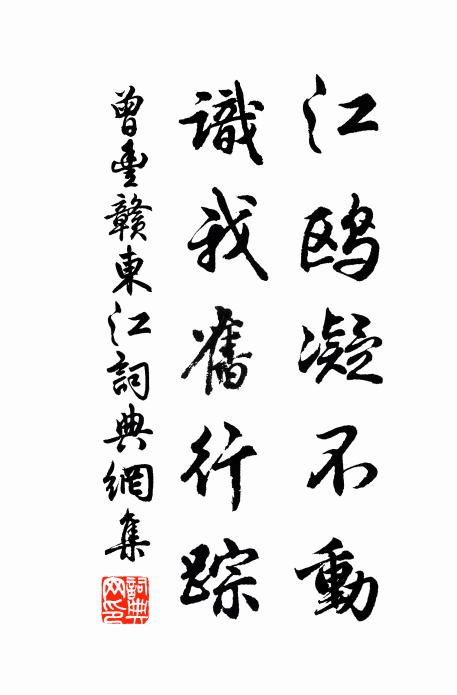 江鸥凝不動
識我舊行踪
曾豐贛東江詞典網集
詞典网印